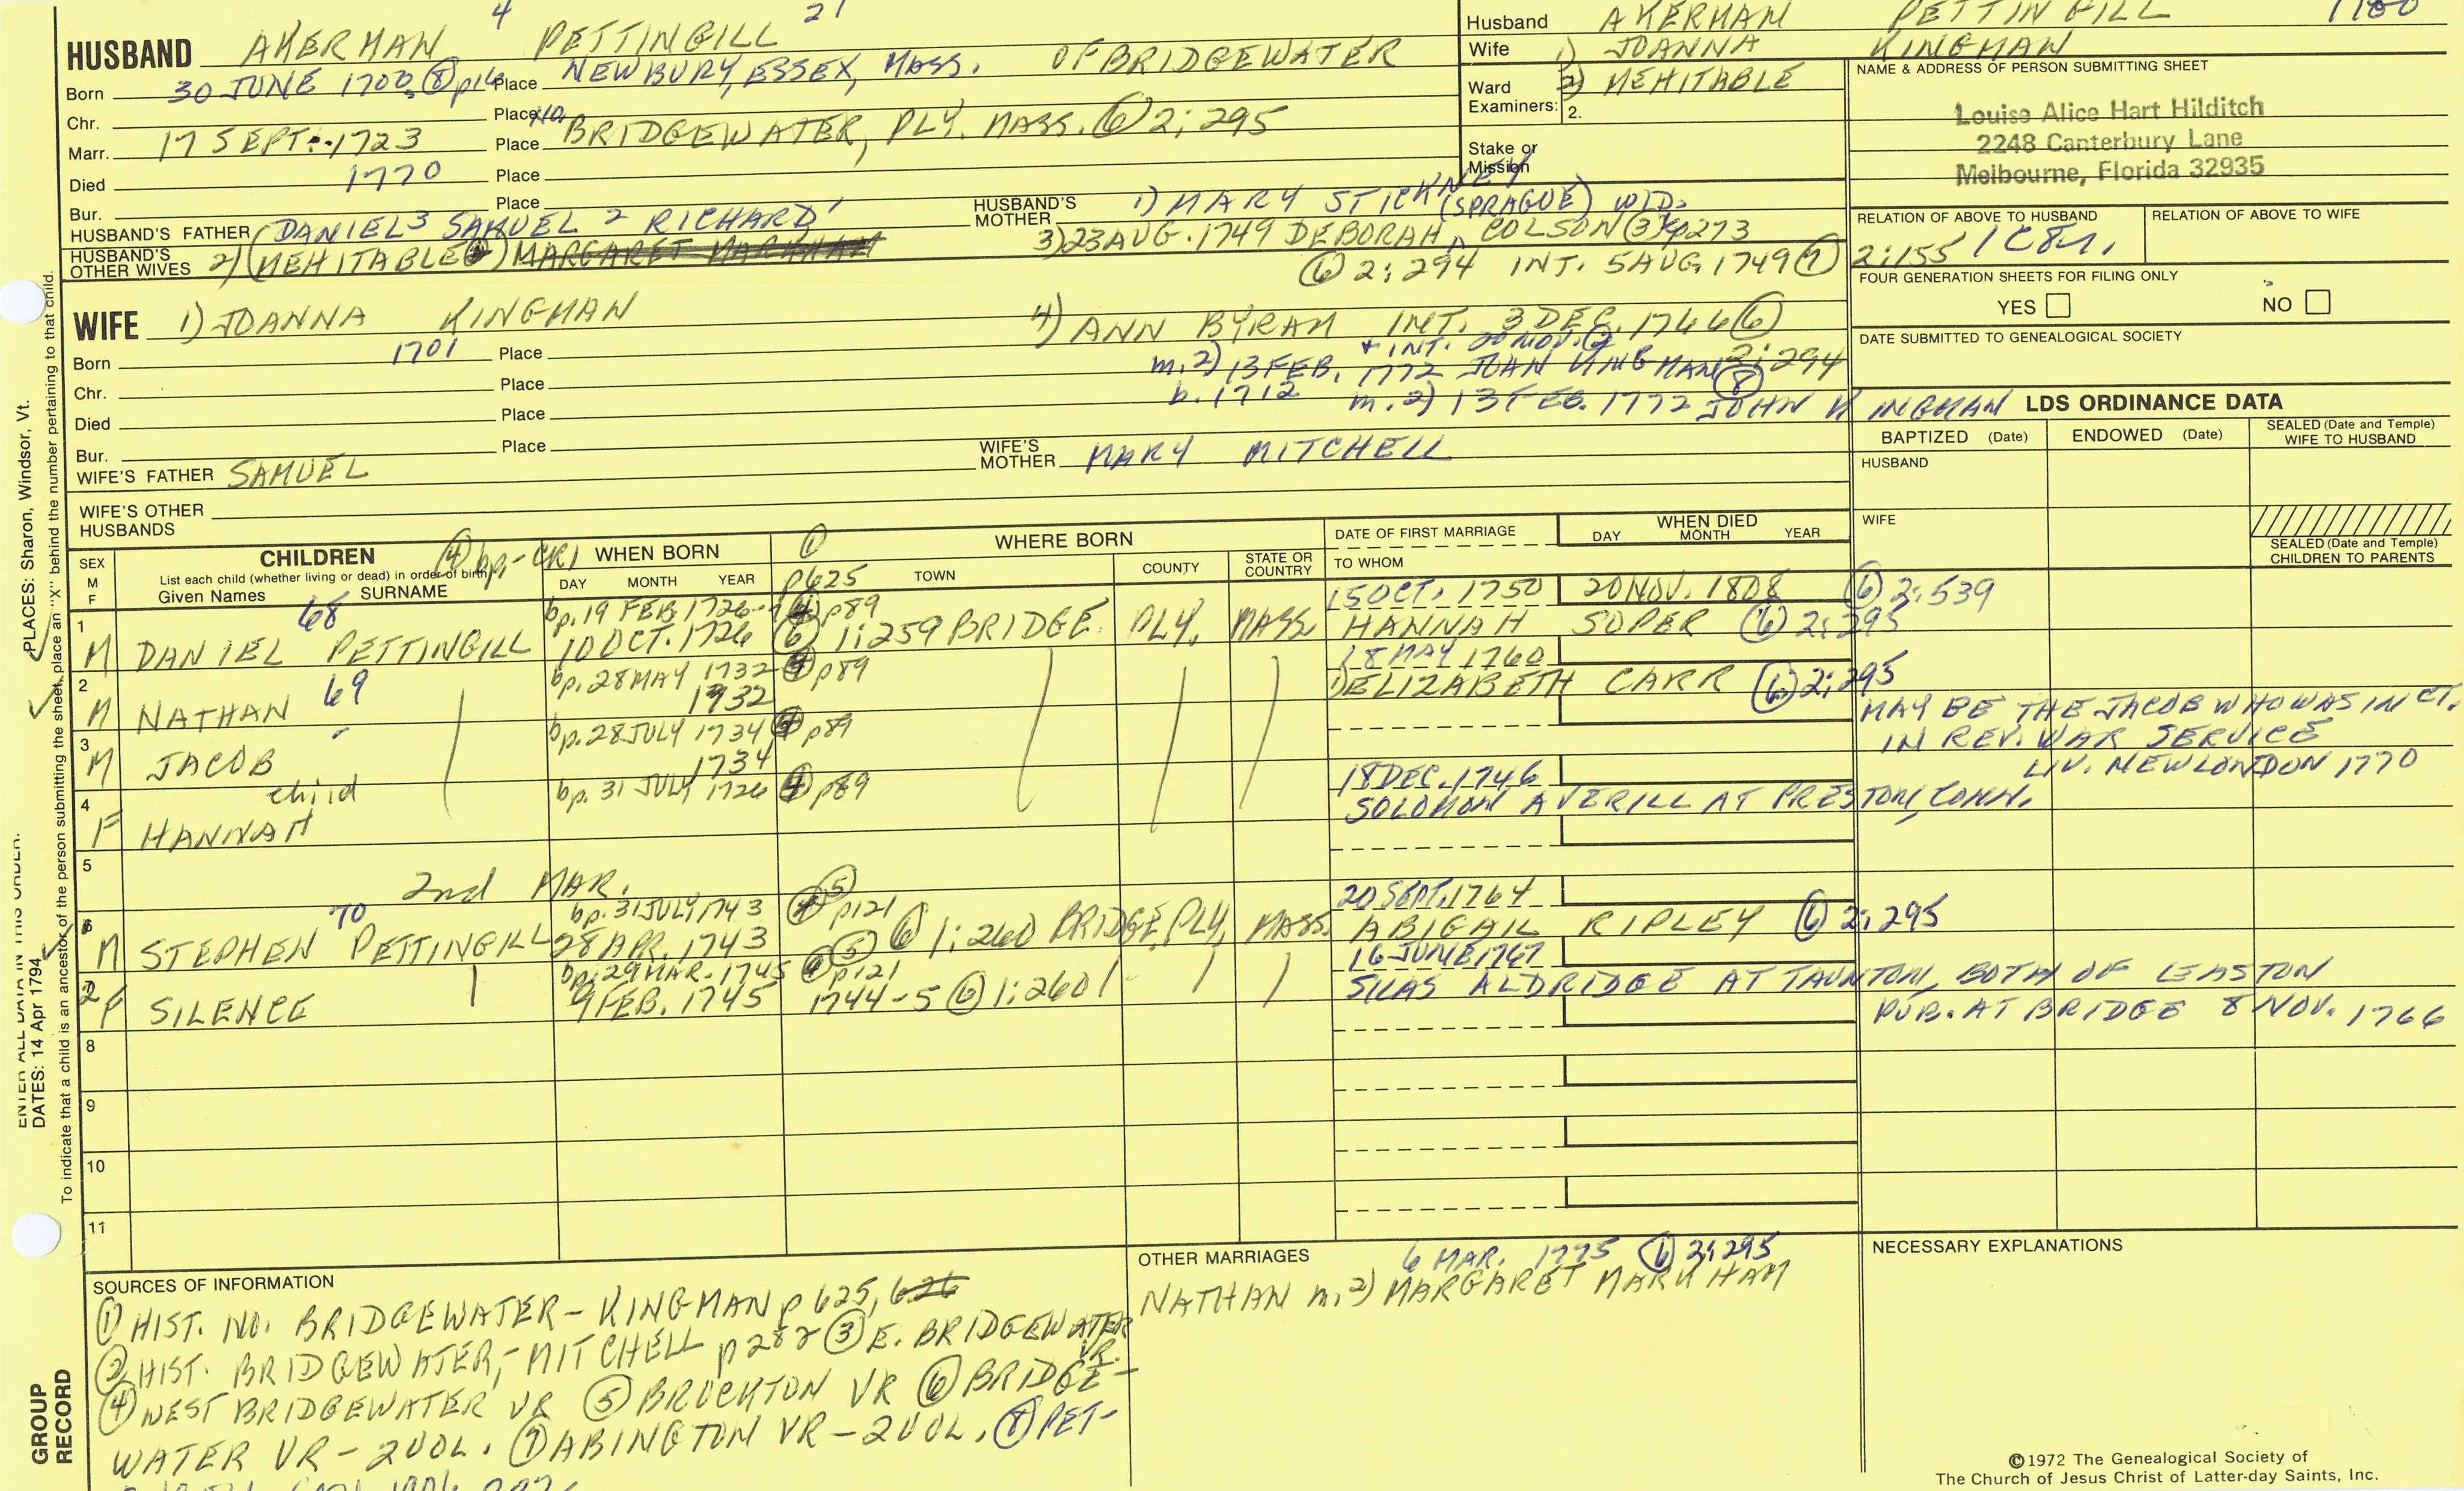 4 21
HUSBAND AKERMAN PETTINGILL
Born 30 JUNE 1700 ⑧ p16 Place NEWBURY, ESSEX, MASS. OF BRIDGEWATER
Chr. Place
Marr. 17 SEPT. 1723 Place BRIDGEWATER, PLY. MASS. ⑥ 2:295
Died 1770 Place
Bur. Place
HUSBAND'S FATHER (DANIEL 3 SAMUEL 2 RICHARD 1
HUSBAND'S MOTHER 1) MARY STICKNEY
HUSBAND'S OTHER WIVES 2) (MEHITABLE) MARGARET MARKHAM
3) 23 AUG. 1749 DEBORAH (SPRAGUE) COLSON WID. ③ p273
⑥ 2:294 INT. 5 AUG. 1749 ⑦ 2:155
Husband AKERMAN PETTINGILL 1700
Wife 1) JOANNA KINGMAN
2) MEHITABLE
Ward
Examiners: 2.
Stake or
Mission
NAME & ADDRESS OF PERSON SUBMITTING SHEET
Louise Alice Hart Hilditch
2248 Canterbury Lane
Melbourne, Florida 32935
RELATION OF ABOVE TO HUSBAND RELATION OF ABOVE TO WIFE
FOUR GENERATION SHEETS FOR FILING ONLY
YES NO
DATE SUBMITTED TO GENEALOGICAL SOCIETY
WIFE 1) JOANNA KINGMAN
4) ANN BYRAM INT. 3 DEC. 1766 ⑥
+ INT. 20 NOV. 2:294
m. 2) 13 FEB. 1772 JOHN KINGMAN ⑧
b. 1712 m. 2) 13 FEB. 1772 JOHN KINGMAN
Born 1701 Place
Chr. Place
Died Place
Bur. Place
WIFE'S FATHER SAMUEL
WIFE'S MOTHER MARY MITCHELL
WIFE'S OTHER
HUSBANDS
LDS ORDINANCE DATA
BAPTIZED (Date) ENDOWED (Date) SEALED (Date and Temple) WIFE TO HUSBAND
HUSBAND
WIFE
SEALED (Date and Temple) CHILDREN TO PARENTS
SEX M F
CHILDREN ④ bp-CR1
List each child (whether living or dead) in order of birth
Given Names SURNAME
WHEN BORN
DAY MONTH YEAR
① p625
WHERE BORN
TOWN COUNTY STATE OR COUNTRY
DATE OF FIRST MARRIAGE
TO WHOM
WHEN DIED
DAY MONTH YEAR
68 bp. 19 FEB 1726-7 ④ p89 15 OCT. 1750 20 NOV. 1808 ⑥ 2:539
1 M DANIEL PETTINGILL 10 OCT. 1726 ⑥ 1:259 BRIDGE. PLY. MASS HANNAH SOPER ⑥ 2:295
69 bp. 28 MAY 1732 ④ p89 18 MAY 1760
2 M NATHAN 1732 1) ELIZABETH CARR ⑥ 2:295
bp. 28 JULY 1734 ④ p89
3 M JACOB 1734
MAY BE THE JACOB WHO WAS IN CT.
IN REV. WAR SERVICE
LIV. NEW LONDON 1770
child bp. 31 JULY 1726 ④ p89 18 DEC. 1746
4 F HANNAH SOLOMON AVERILL AT PRESTON, CONN.
5 2nd MAR.
70 bp. 31 JULY 1743 ④ ⑤ p121 20 SEPT. 1764
6 M STEPHEN PETTINGILL 28 APR. 1743 ⑤ ⑥ 1:260 BRIDGE. PLY. MASS. ABIGAIL RIPLEY ⑥ 2:295
bp. 29 MAR. 1745 ④ p121 16 JUNE 1767
7 F SILENCE 9 FEB. 1745 1744-5 ⑥ 1:260 SILAS ALDRIDGE AT TAUNTON, BOTH OF EASTON
PUB. AT BRIDGE 8 NOV. 1766
8
9
10
11
SOURCES OF INFORMATION
① HIST. NO. BRIDGEWATER - KINGMAN p 625, 626
② HIST. BRIDGEWATER, - MITCHELL p 282 ③ E. BRIDGEWATER VR.
④ WEST BRIDGEWATER VR ⑤ BROCKTON VR ⑥ BRIDGE-
WATER VR - 2 VOL. ⑦ ABINGTON VR - 2 VOL. ⑧ PET-
OTHER MARRIAGES 6 MAR. 1775 ⑥ 2:295
NATHAN m. 2) MARGARET MARKHAM
NECESSARY EXPLANATIONS
©1972 The Genealogical Society of
The Church of Jesus Christ of Latter-day Saints, Inc.
PLACES: Sharon, Windsor, Vt.
ENTER ALL DATA IN THIS ORDER:
DATES: 14 Apr 1794
To indicate that a child is an ancestor of the person submitting the sheet, place an "X" behind the number pertaining to that child.
GROUP
RECORD